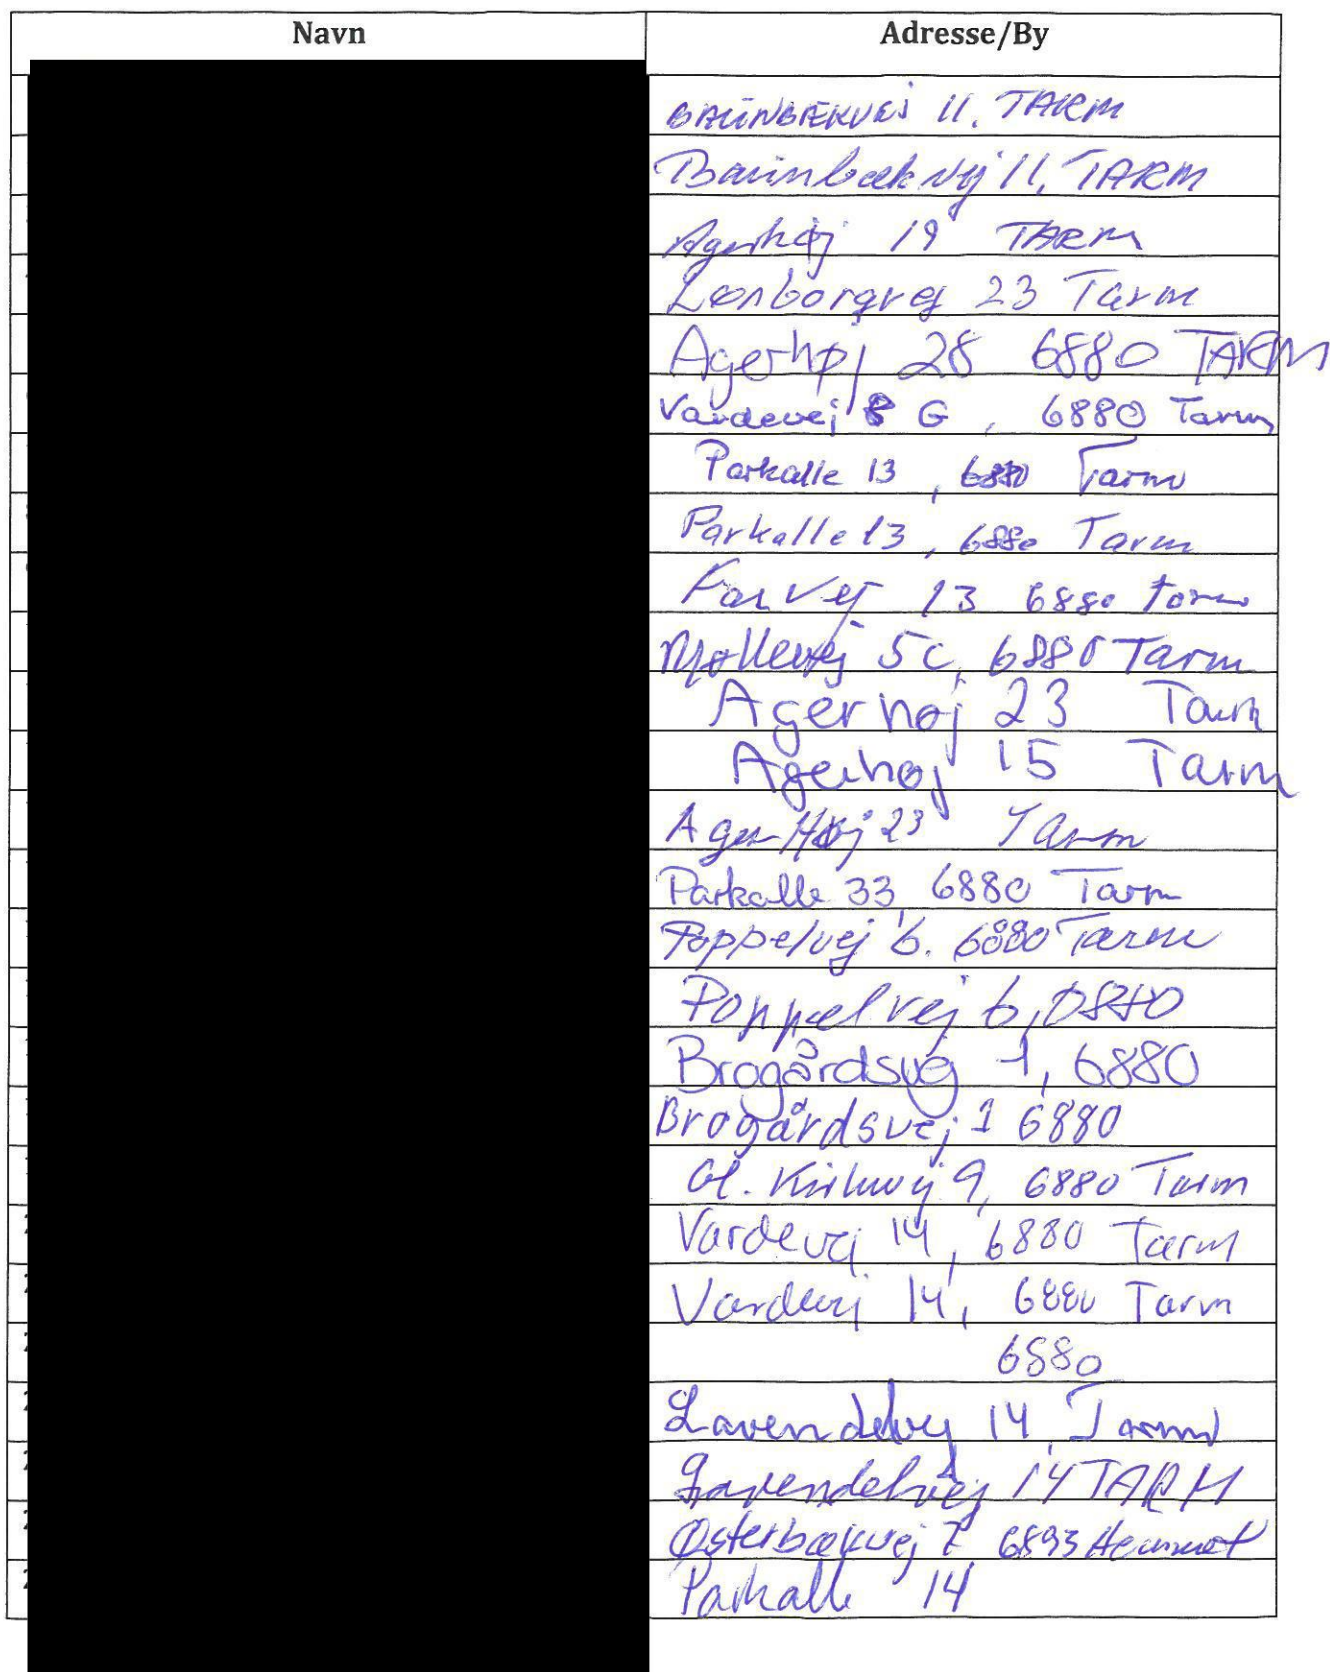 Navn Adresse/By
BAUNBÆKVEJ 11. TARM
Baunbækvej 11, TARM
Agerhøj 19 TARM
Lønborgvej 23 Tarm
Agerhøj 28 6880 TARM
Vardevej 8 G, 6880 Tarm
Parkalle 13, 6880 Tarm
Parkalle 13, 6880 Tarm
13 6880 Tarm
Møllevej 5c, 6880 Tarm
Agerhøj 23 Tarm
Agerhøj 15 Tarm
Ager Høj 23 Tarm
Parkalle 33, 6880 Tarm
Poppelvej 6. 6880 Tarm
Poppelvej 6, 6880
Brogårdsvej 1, 6880
Brogårdsvej 1 6880
Gl. Kirkevej 9, 6880 Tarm
Vardevej 14, 6880 Tarm
Vardevej 14, 6880 Tarm
6880
Lavendelvej 14, Tarm
Lavendelvej 14 TARM
Østerbækvej 7, 6893 Hemmet
Parkalle 14